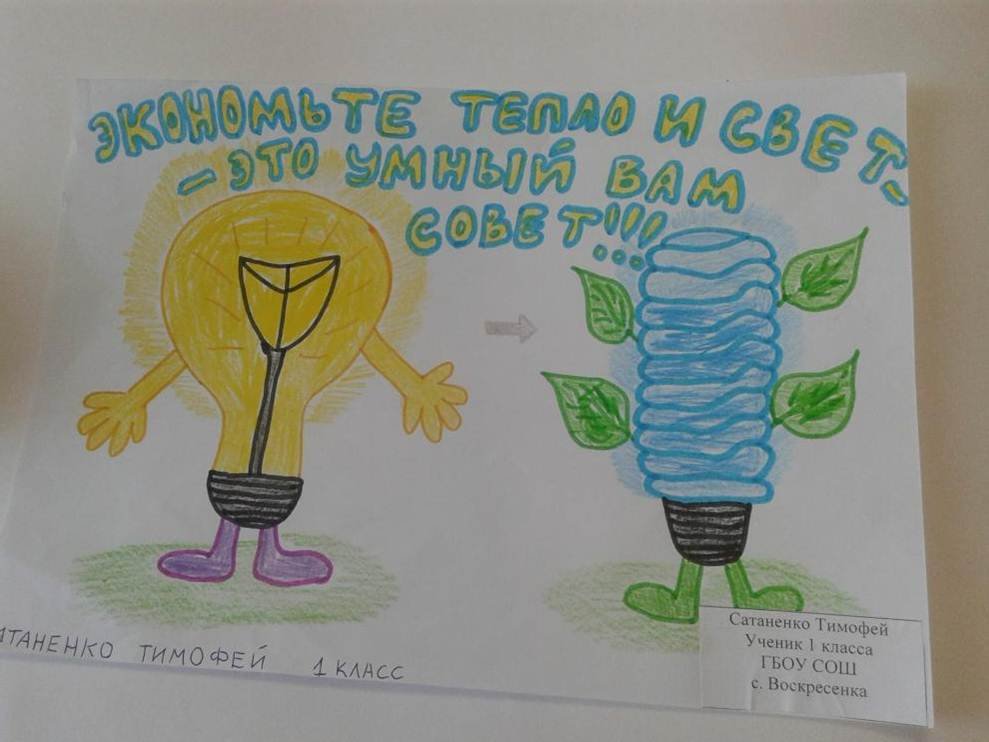 ЭКОНОМЬТЕ ТЕПЛО И СВЕТ-
- ЭТО УМНЫЙ ВАМ
СОВЕТ!!!
АТАНЕНКО ТИМОФЕЙ 1 КЛАСС
Сатаненко Тимофей
Ученик 1 класса
ГБОУ СОШ
с. Воскресенка